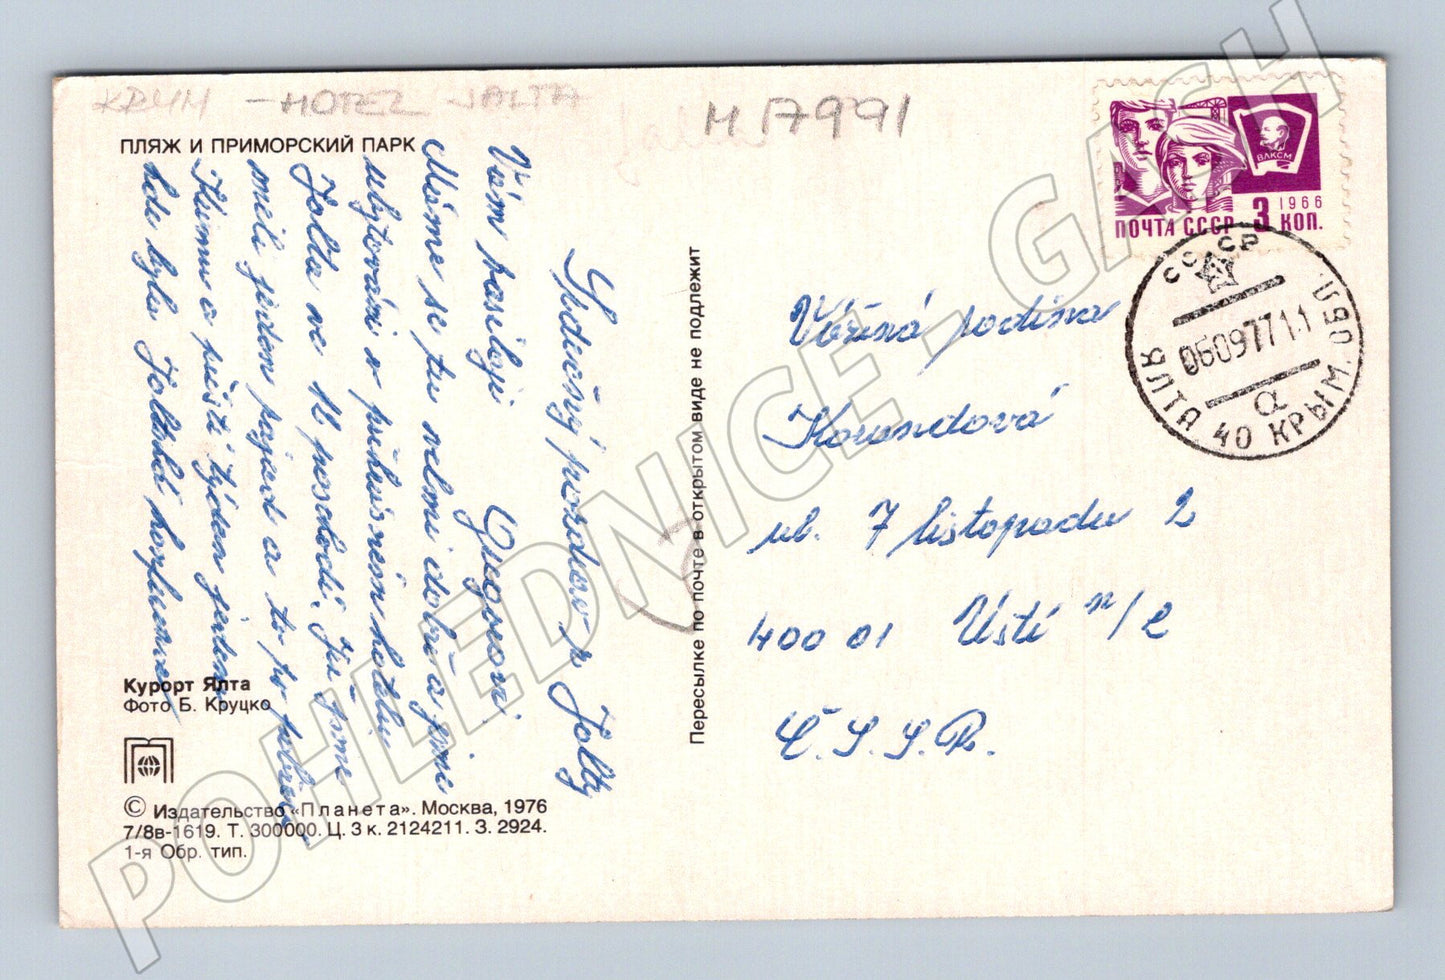 КРЫМ - HOTEL JALTA
Jalta
H 17991
ПЛЯЖ И ПРИМОРСКИЙ ПАРК
ВЛКСМ
1966
ПОЧТА СССР 3 КОП.
СССР
06097711
а
ЯЛТА 40 КРЫМ. ОБЛ
Srdečný pozdrav z Jalty
Vám posílají
Máme se tu velmi dobře a jsme
ubytováni v přepychovém hotelu
Jalta ve 12 poschodí. Již jsme
měli jeden zájezd a to po
Krimu a příští týden jedeme
kde byla Jaltská konference
Vážená rodina
Korandová
ul. 7 listopadu 2
400 01 Ústí n/L
Č.S.S.R.
Пересылке по почте в открытом виде не подлежит
Курорт Ялта
Фото Б. Круцко
© Издательство «Планета». Москва, 1976
7/8в-1619. Т. 300000. Ц. 3 к. 2124211. З. 2924.
1-я Обр. тип.
POHLEDNICE - GASH